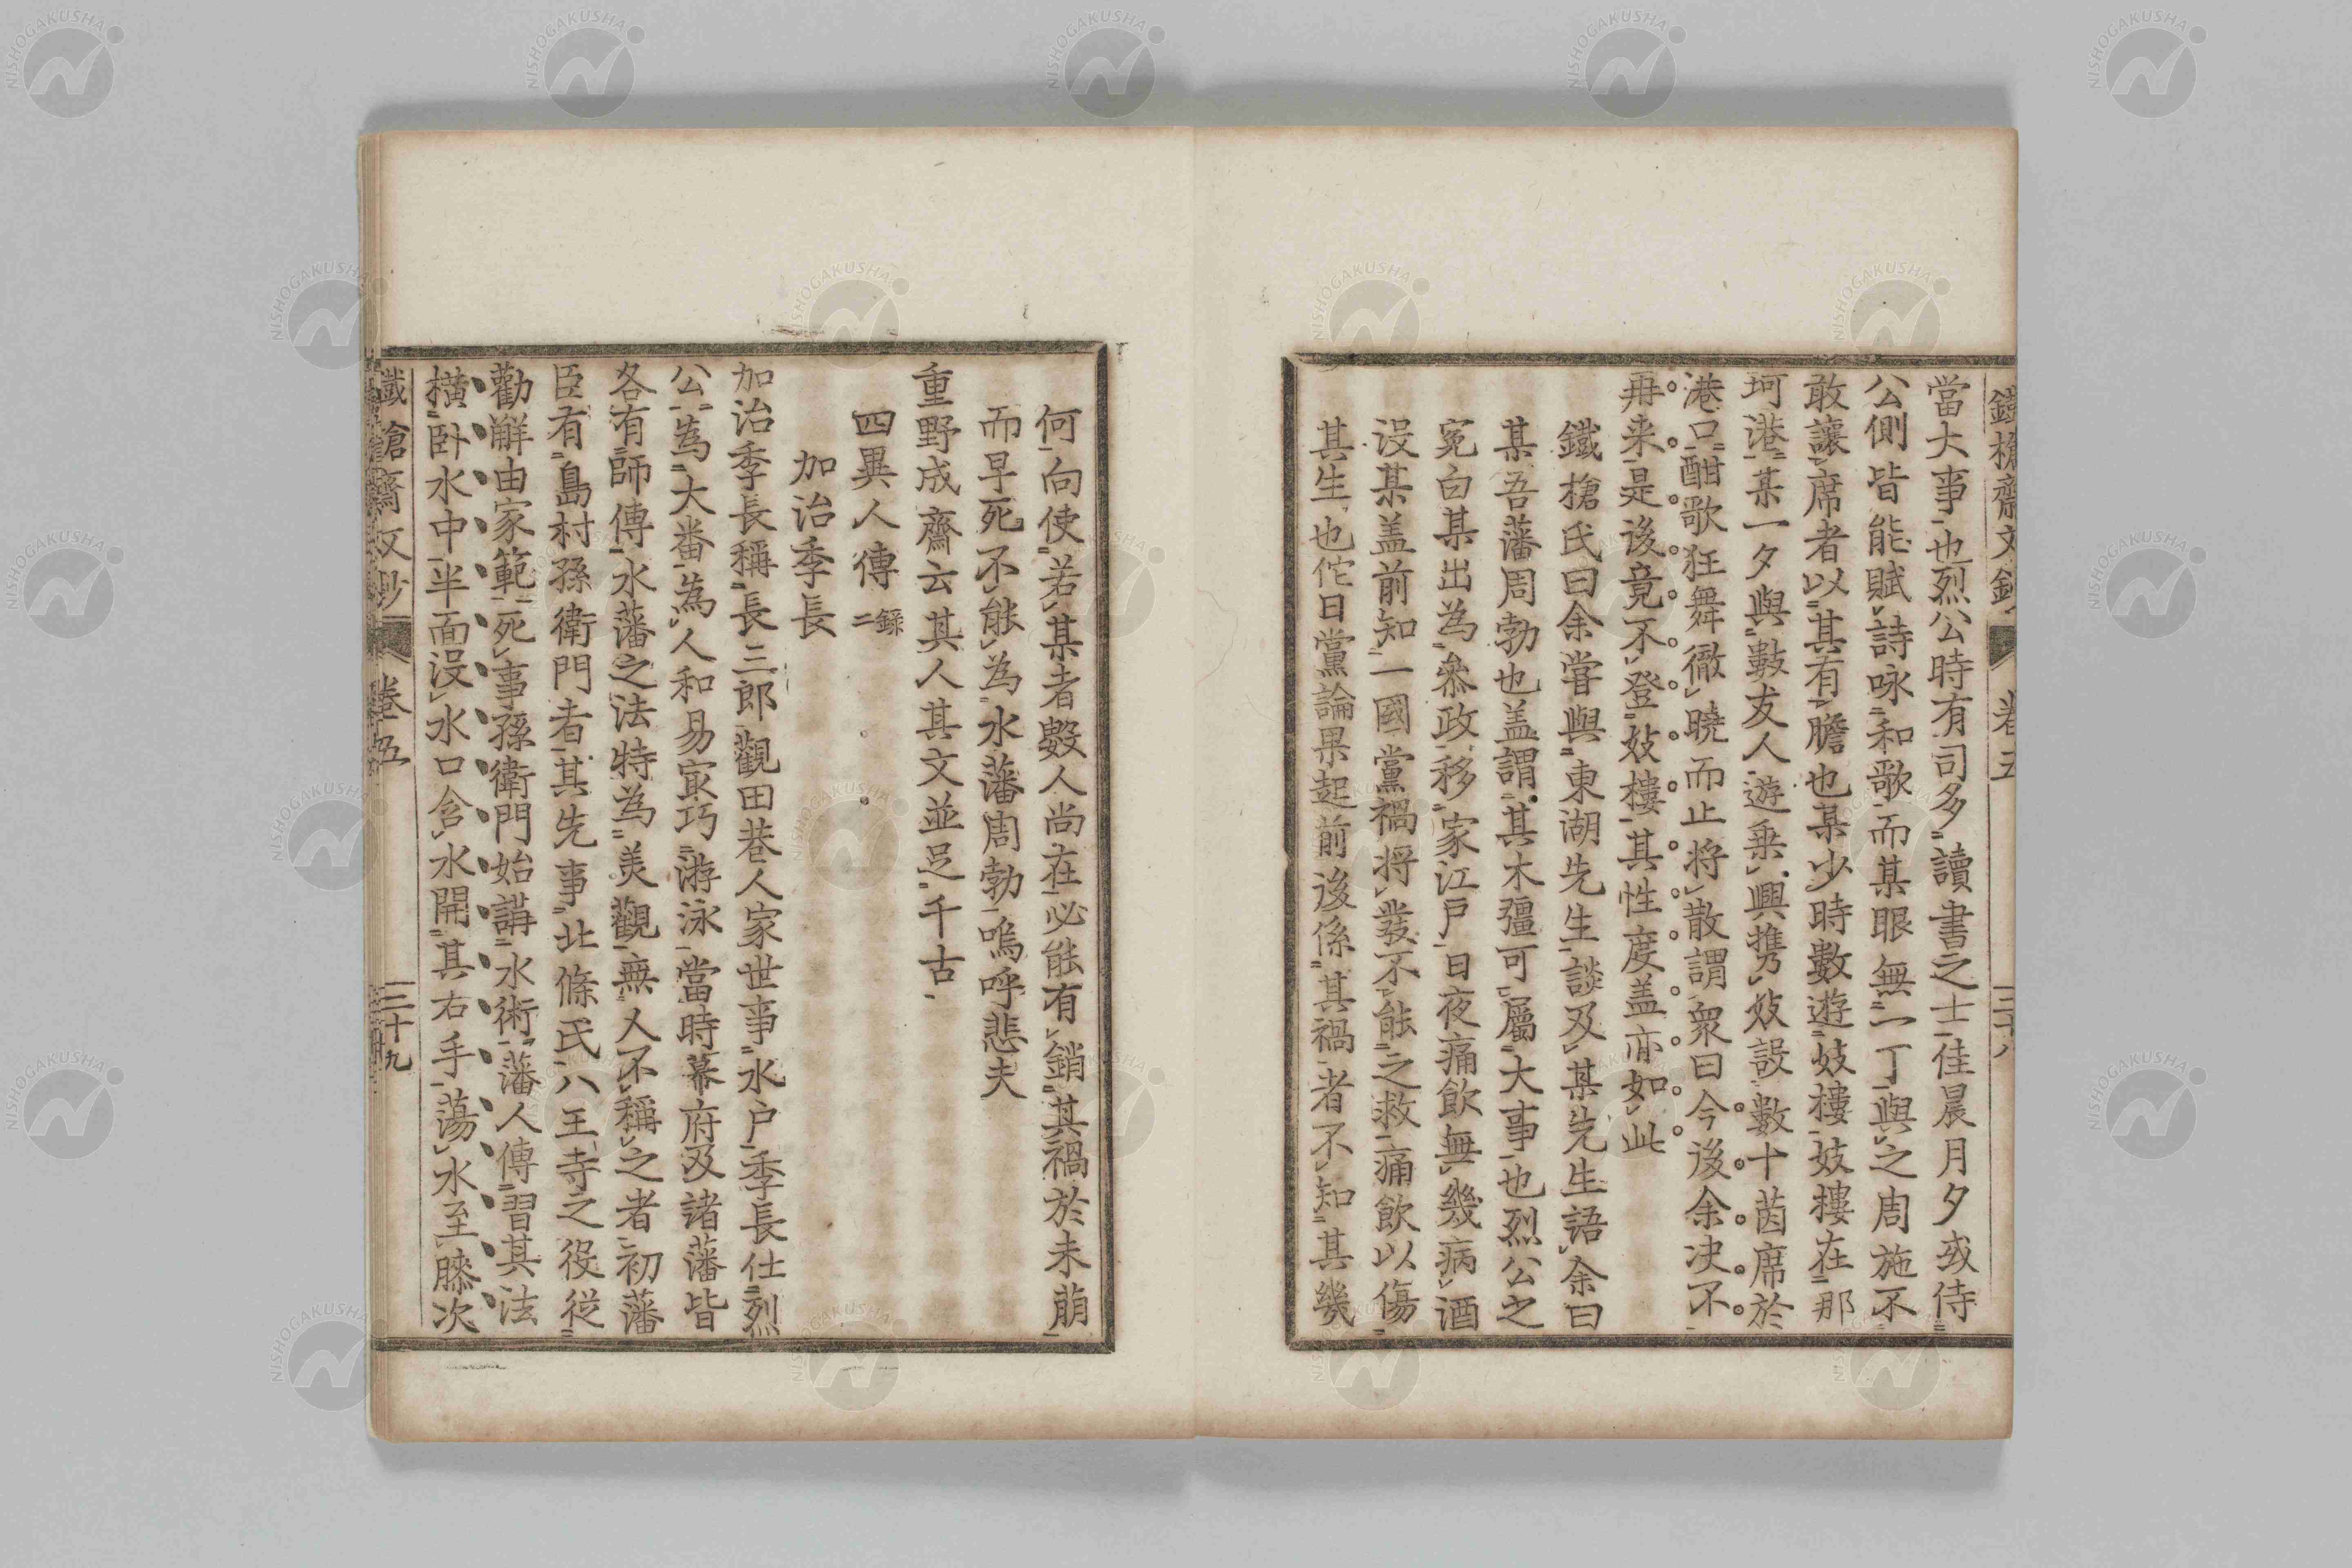 鐵槍齋文鈔 卷五 三十八
當大事也烈公時有司多讀書之士佳晨月夕或侍
公側皆能賦詩咏和歌而某眼無一丁與之周施不
敢讓席者以其有膽也某少時數遊妓樓妓樓在那
珂港某一夕與數友人遊乗興携妓設數十茵席於
港口酣歌狂舞徹曉而止将散謂衆曰今後余决不
再来是後竟不登妓樓其性度盖亦如此
鐵槍氏曰余嘗與東湖先生談及某先生語余曰
某吾藩周勃也盖謂其木彊可屬大事也烈公之
冤白某出為叅政移家江戸日夜痛飲無幾病酒
没某盖前知一國黨禍将發不能之救痛飲以傷
其生也佗日黨論果起前後係其禍者不知其幾
何向使若某者數人尚在必能有銷其禍於未萠
而早死不能為水藩周勃嗚呼悲夫
重野成齋云其人其文並足千古
四異人傳 錄二
加治季長
加治季長稱長三郎觀田巷人家世事水户季長仕烈
公為大番為人和易㝡巧游泳當時幕府及諸藩皆
各有師傳水藩之法特為美觀無人不稱之者初藩
臣有島村孫衛門者其先事北條氏八王寺之役従
勸觧由家範死事孫衛門始講水術藩人傳習其法
橫卧水中半面没水口含水開其右手蕩水至膝次
鐵槍齋文鈔 卷五 三十九
NISHOGAKUSHA